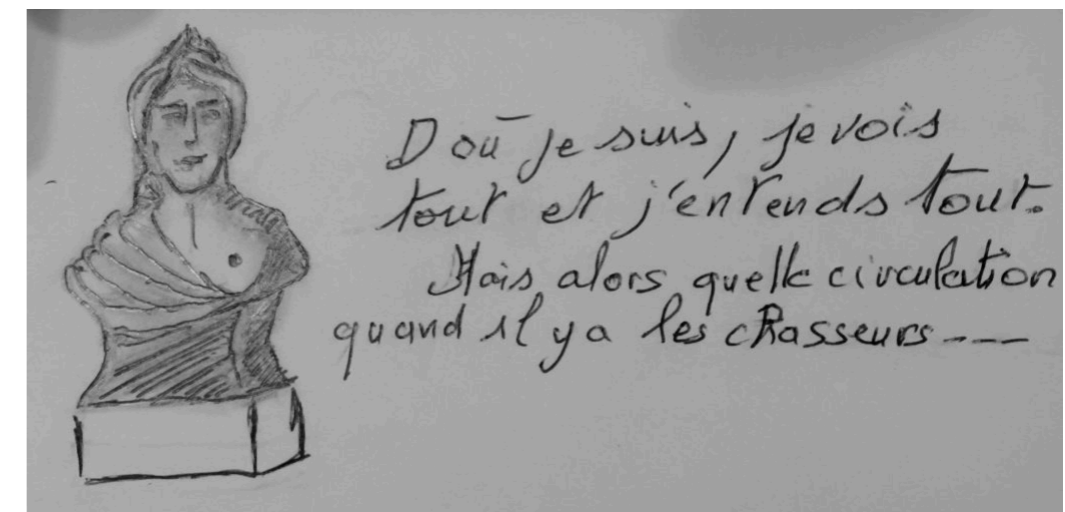 D'où je suis, je vois
tout et j'entends tout.
Mais alors quelle circulation
quand il y a les chasseurs----